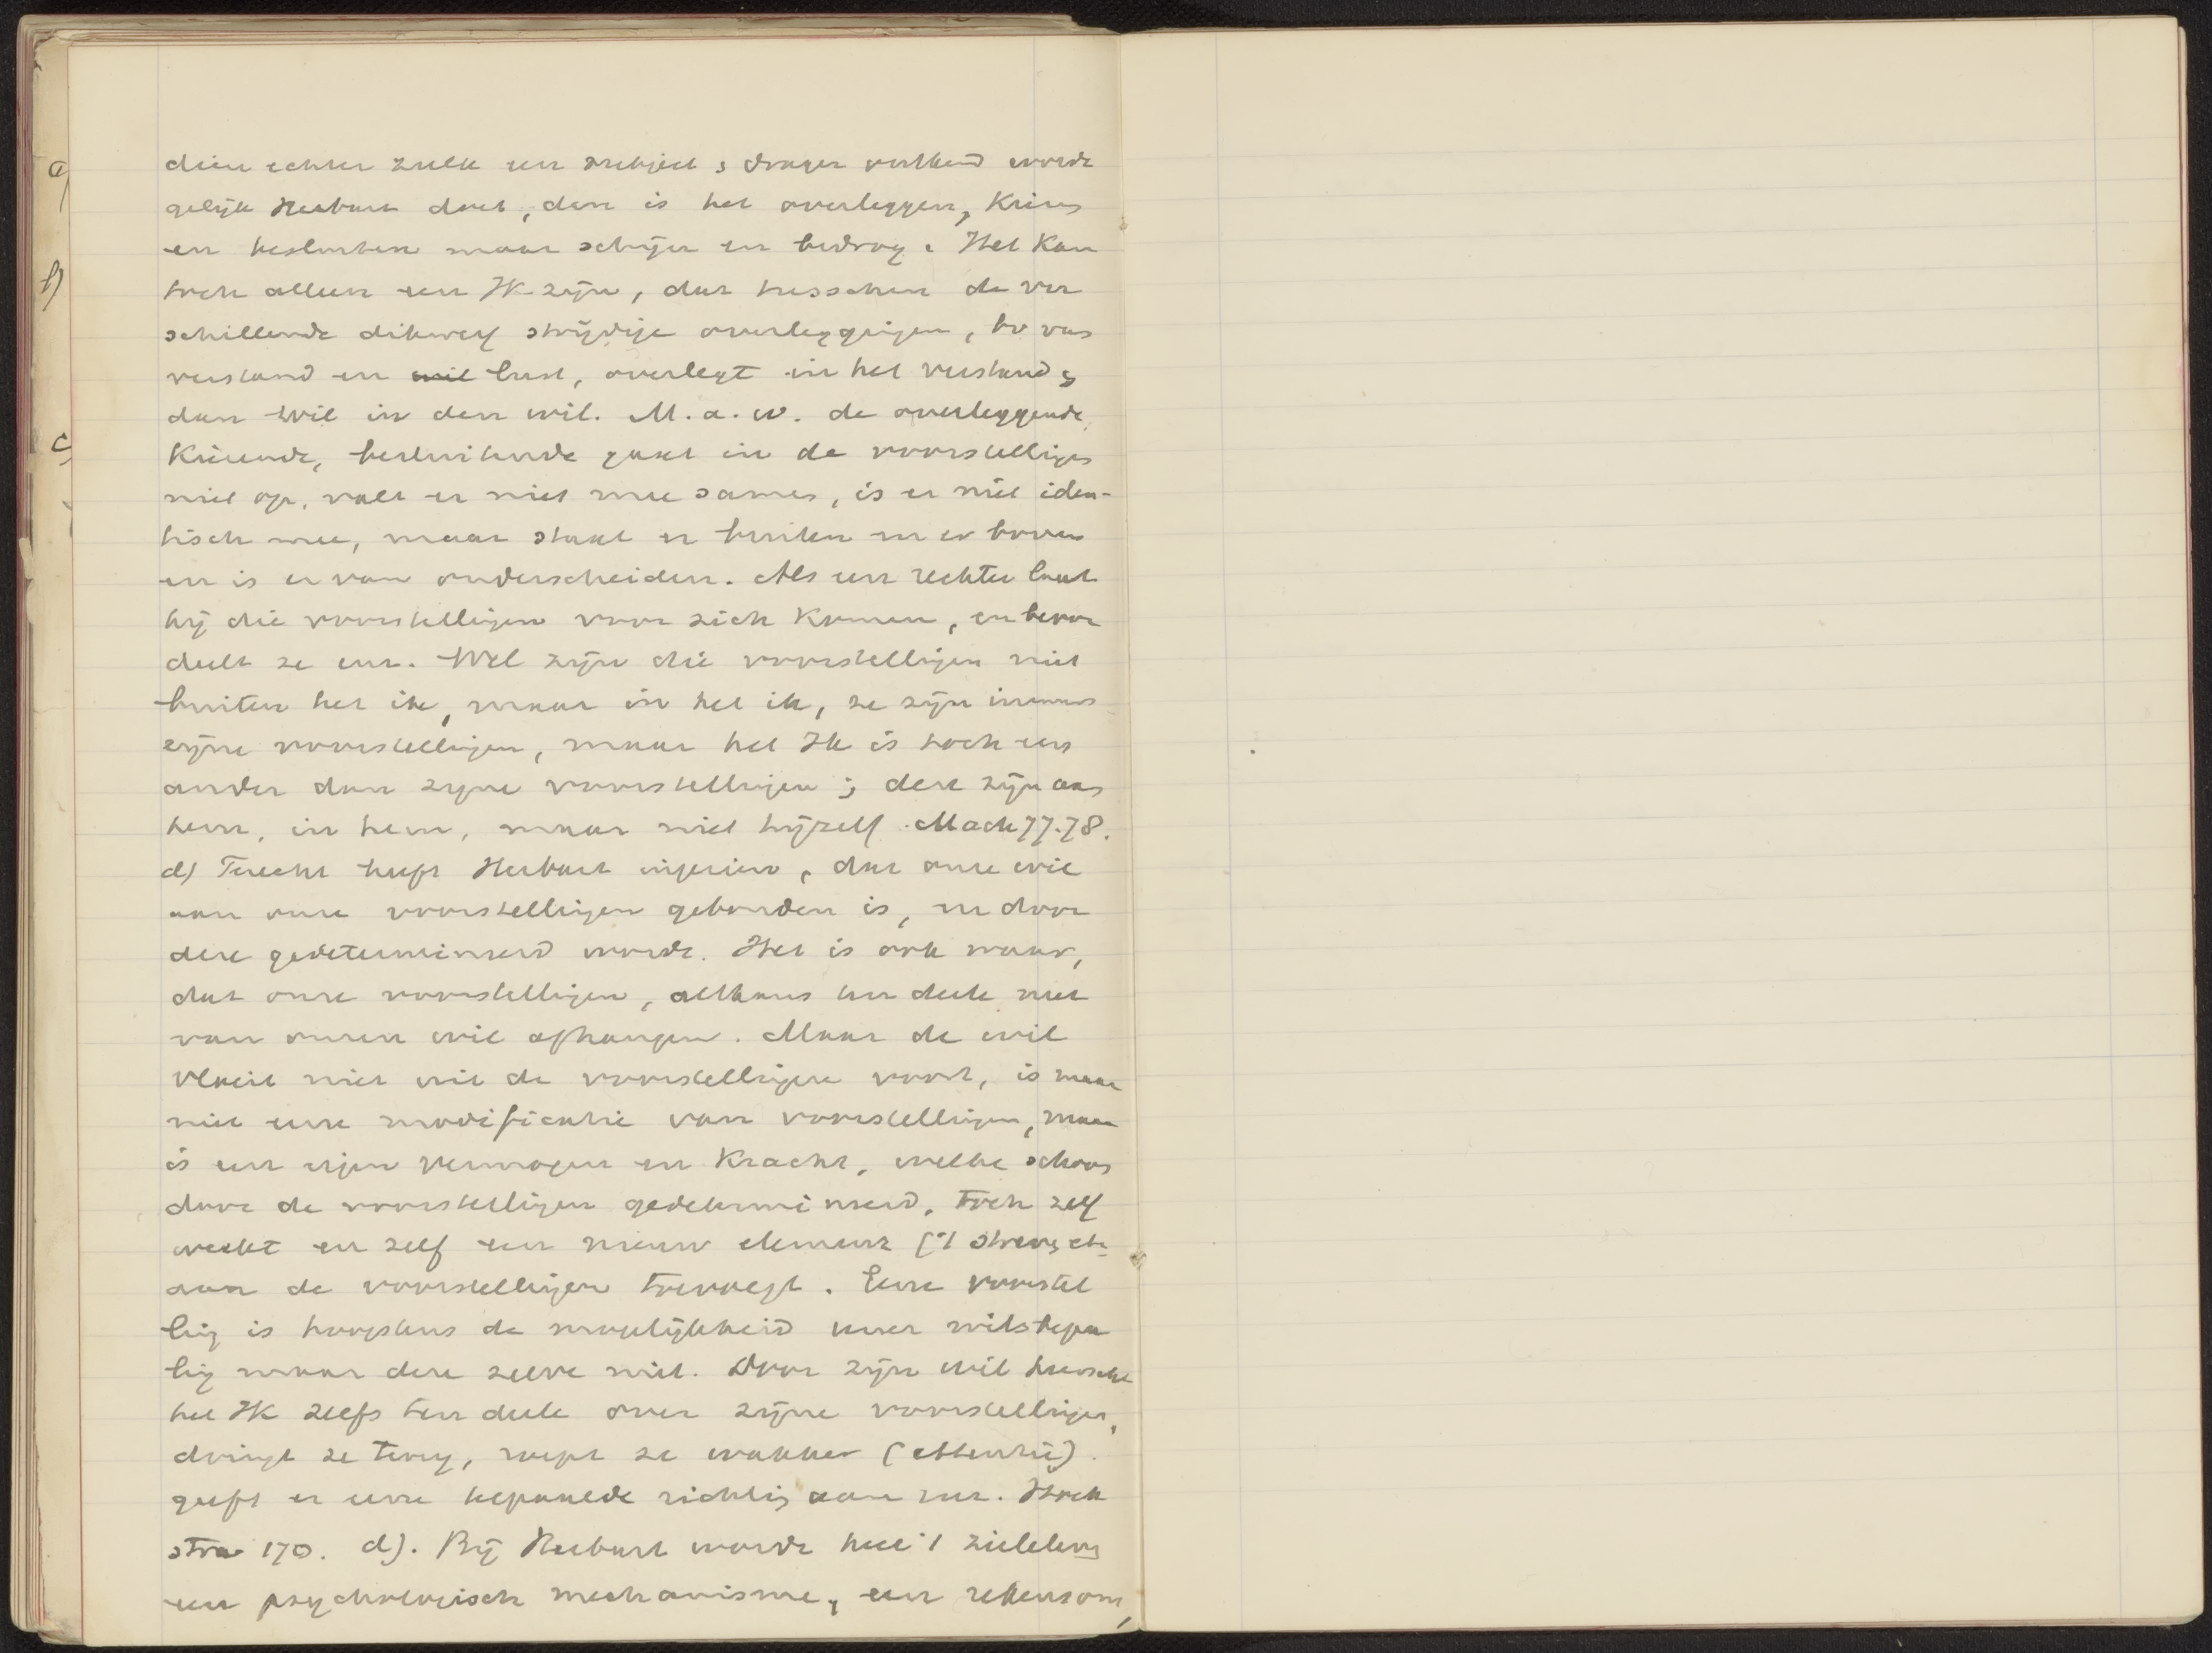 a)
b)
c)
dien echter zulk een subject & drager ontkend wordt
gelijk Herbart doet, dan is het overleggen, kiezen
en besluiten maar schijn en bedrog. Het kan
toch alleen een Ik zijn, dat tusschen de ver
schillende dikwerf strijdige overleggingen, bv van
verstand en wil lust, overlegt in het verstand &
dan wil in den wil. M.a.w. de overleggende,
kiezende, besluitende gaat in de voorstellingen
niet op, valt er niet mee samen, is er niet iden-
tisch mee, maar staat er buiten en er boven
en is er van onderscheiden. Als een rechter laat
hij die voorstellingen voor zich komen, en beoor
deelt ze enz. Wel zijn die voorstellingen niet
buiten het ik, maar in het ik, ze zijn immers
zijne voorstellingen, maar het Ik is toch een
ander dan zijne voorstellingen; deze zijn aan
hem, in hem, maar niet hijzelf. Mach 77.78.
d) Terecht heeft Herbart ingezien, dat onze wil
aan onze voorstellingen gebonden is, en door
deze gedetermineerd wordt. Het is ook waar,
dat onze voorstellingen, althans ten deele niet
van onzen wil afhangen. Maar de wil
vloeit niet uit de voorstellingen voort, is maar
niet eene modificatie van voorstellingen, maar
is een eigen vermogen en kracht, welke schoon
door de voorstellingen gedetermineerd, toch zelf
werkt en zelf een nieuw element ('t streven etc
aan de voorstellingen toevoegt. Eene voorstel
ling is hoogstens de mogelijkheid eener wilsbepa
ling maar deze zelve niet. Door zijn wil heerscht
het Ik zelfs ten deele over zijne voorstellingen,
dringt ze terug, roept ze wakker (attentie).
geeft er eene bepaalde richting aan enz. Hoek
stra 170. d). Bij Herbart wordt heel 't zieleleven
een psychologisch mechanisme, een rekensom,